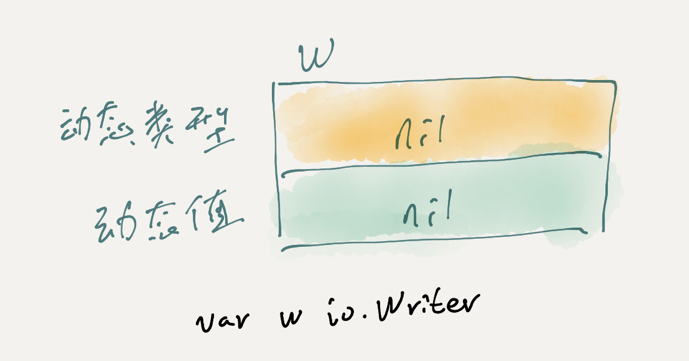 W
动态类型 nil
动态值 nil
var w io.Writer